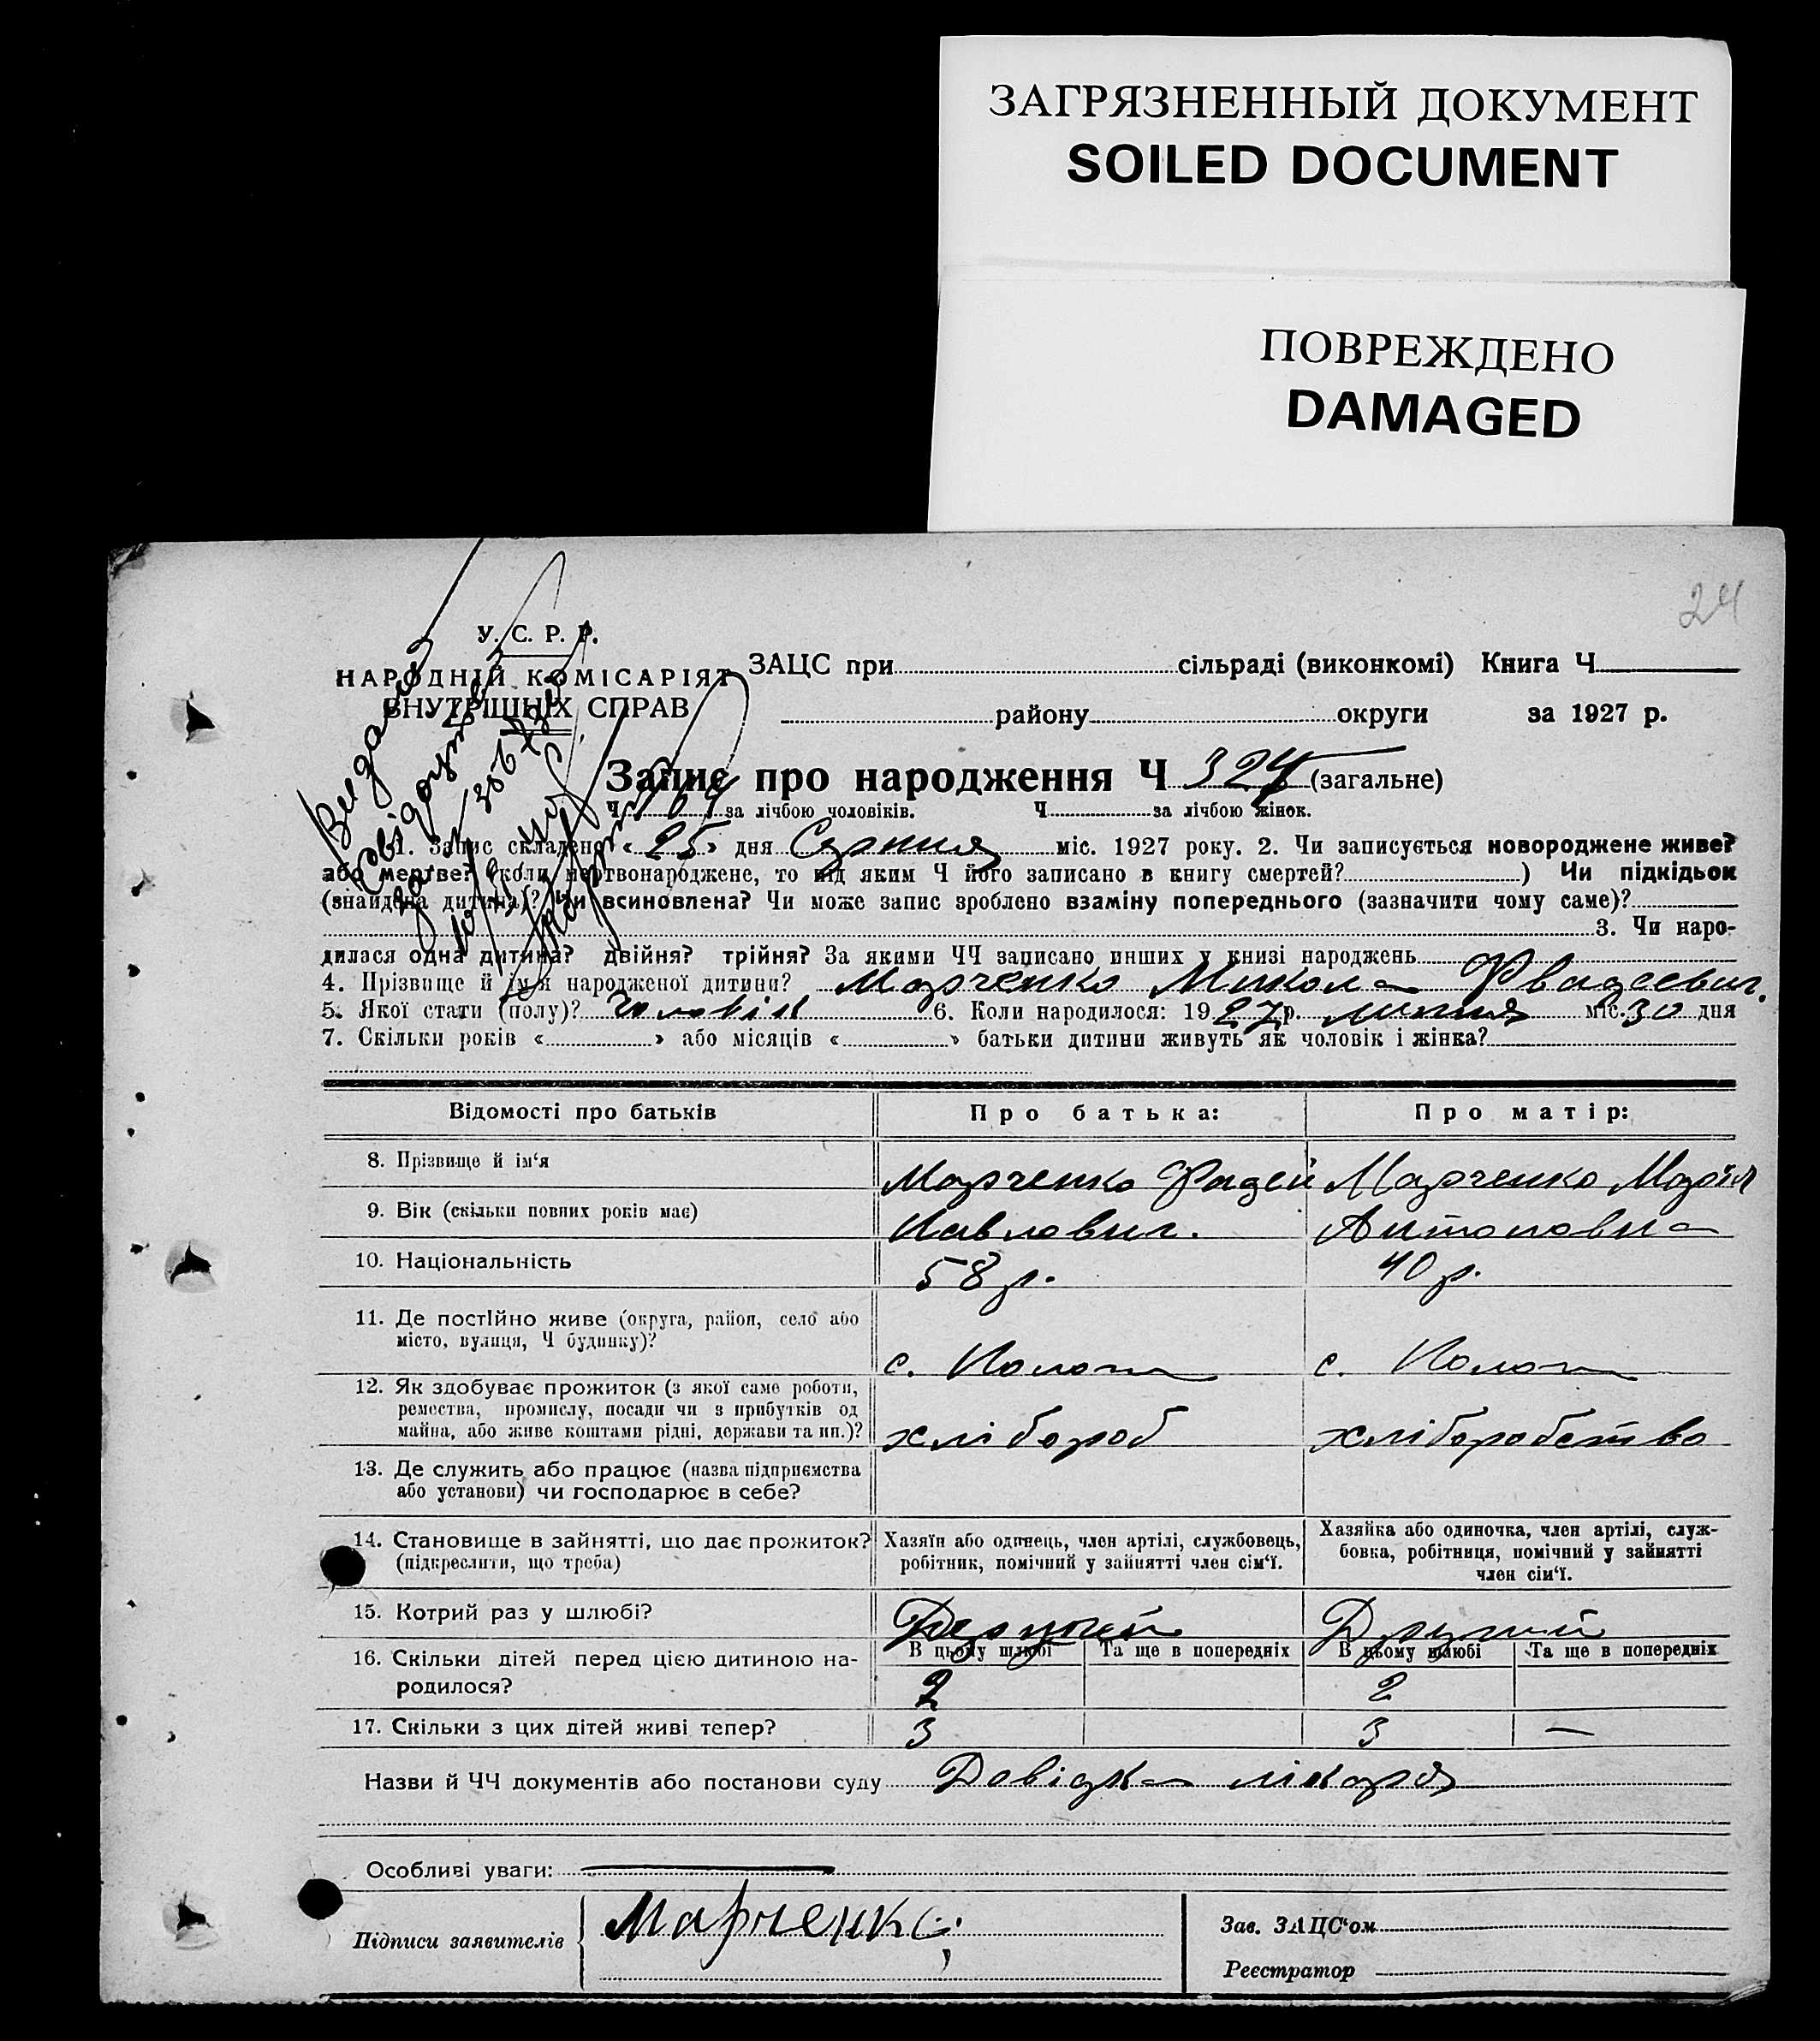 ЗАГРЯЗНЕННЫЙ ДОКУМЕНТ
SOILED DOCUMENT
ПОВРЕЖДЕНО
DAMAGED
24
У. С. Р. Р.
НАРОДНІЙ КОМІСАРІЯТ
ВНУТРІШНІХ СПРАВ
ЗАЦС при сільраді (виконкомі) Книга Ч
району округи за 1927 р.
Видано
свідоцтво
за №
Запис про народження Ч 324 (загальне)
Ч за лічбою чоловіків. Ч за лічбою жінок.
1. Запис складено «25» дня Серпня міс. 1927 року. 2. Чи записується новороджене живе?
або мертве? (коли мертвонароджене, то під яким Ч його записано в книгу смертей? ) Чи підкідьок
(знайдена дитина)? Чи всиновлена? Чи може запис зроблено взаміну попереднього (зазначити чому саме)?
3. Чи наро-
дилася одна дитина? двійня? трійня? За якими ЧЧ записано инших у книзі народжень
4. Прізвище й ім'я народженої дитини? Марченко Микола Фадеевич.
5. Якої стати (полу)? Чоловік 6. Коли народилося: 1927 р. липня міс. 30 дня
7. Скільки років « » або місяців « » батьки дитини живуть як чоловік і жінка?
Відомості про батьків Про батька: Про матір:
8. Прізвище й ім'я Марченко Фадей Марченко Марія
9. Вік (скільки повних років має) Павлович. Антоновна
10. Національність 58 р. 40 р.
11. Де постійно живе (округа, район, село або
місто, вулиця, Ч будинку)? с. с.
12. Як здобуває прожиток (з якої саме роботи,
ремества, промислу, посади чи з прибутків од
майна, або живе коштами рідні, держави та ин.)? хлібороб хліборобство
13. Де служить або працює (назва підприємства
або установи) чи господарює в себе?
14. Становище в зайнятті, що дає прожиток?
(підкреслити, що треба)
Хазяїн або одинець, член артілі, службовець,
робітник, помічний у зайнятті член сім'ї.
Хазяйка або одиночка, член артілі, служ-
бовка, робітниця, помічний у зайнятті
член сім'ї.
15. Котрий раз у шлюбі? Другий
В цьому шлюбі Та ще в попередніх В цьому шлюбі Та ще в попередніх
16. Скільки дітей перед цією дитиною на-
родилося? 2 2
17. Скільки з цих дітей живі тепер? 3 3 —
Назви й ЧЧ документів або постанови суду Довідка лікаря
Особливі уваги:
Підписи заявителів Марченко
Зав. ЗАЦС'ом
Реєстратор